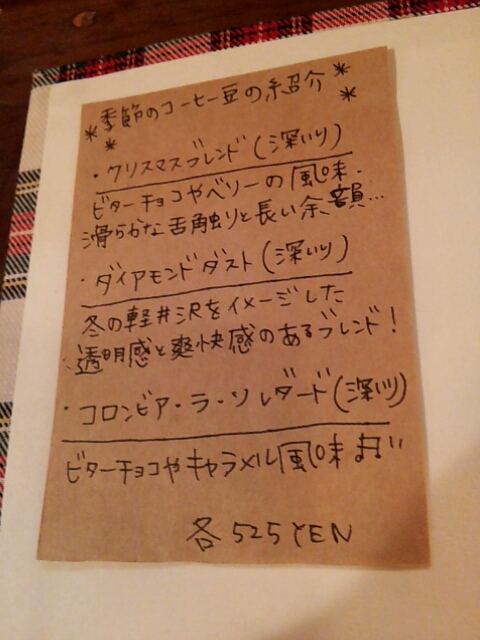 季節のコーヒー豆の紹介
・クリスマスブレンド(深いり)
ビターチョコやベリーの風味.
滑らかな舌触りと長い余韻…
・ダイアモンドダスト(深いり)
冬の軽井沢をイメージした
透明感と爽快感のあるブレンド!
・コロンビア・ラ・ソレダード(深いり)
ビターチョコやキャラメル風味
各525YEN